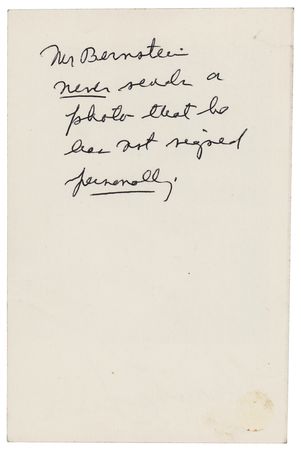 Mr Bernstein
never sends a
photo that he
has not signed
personally.